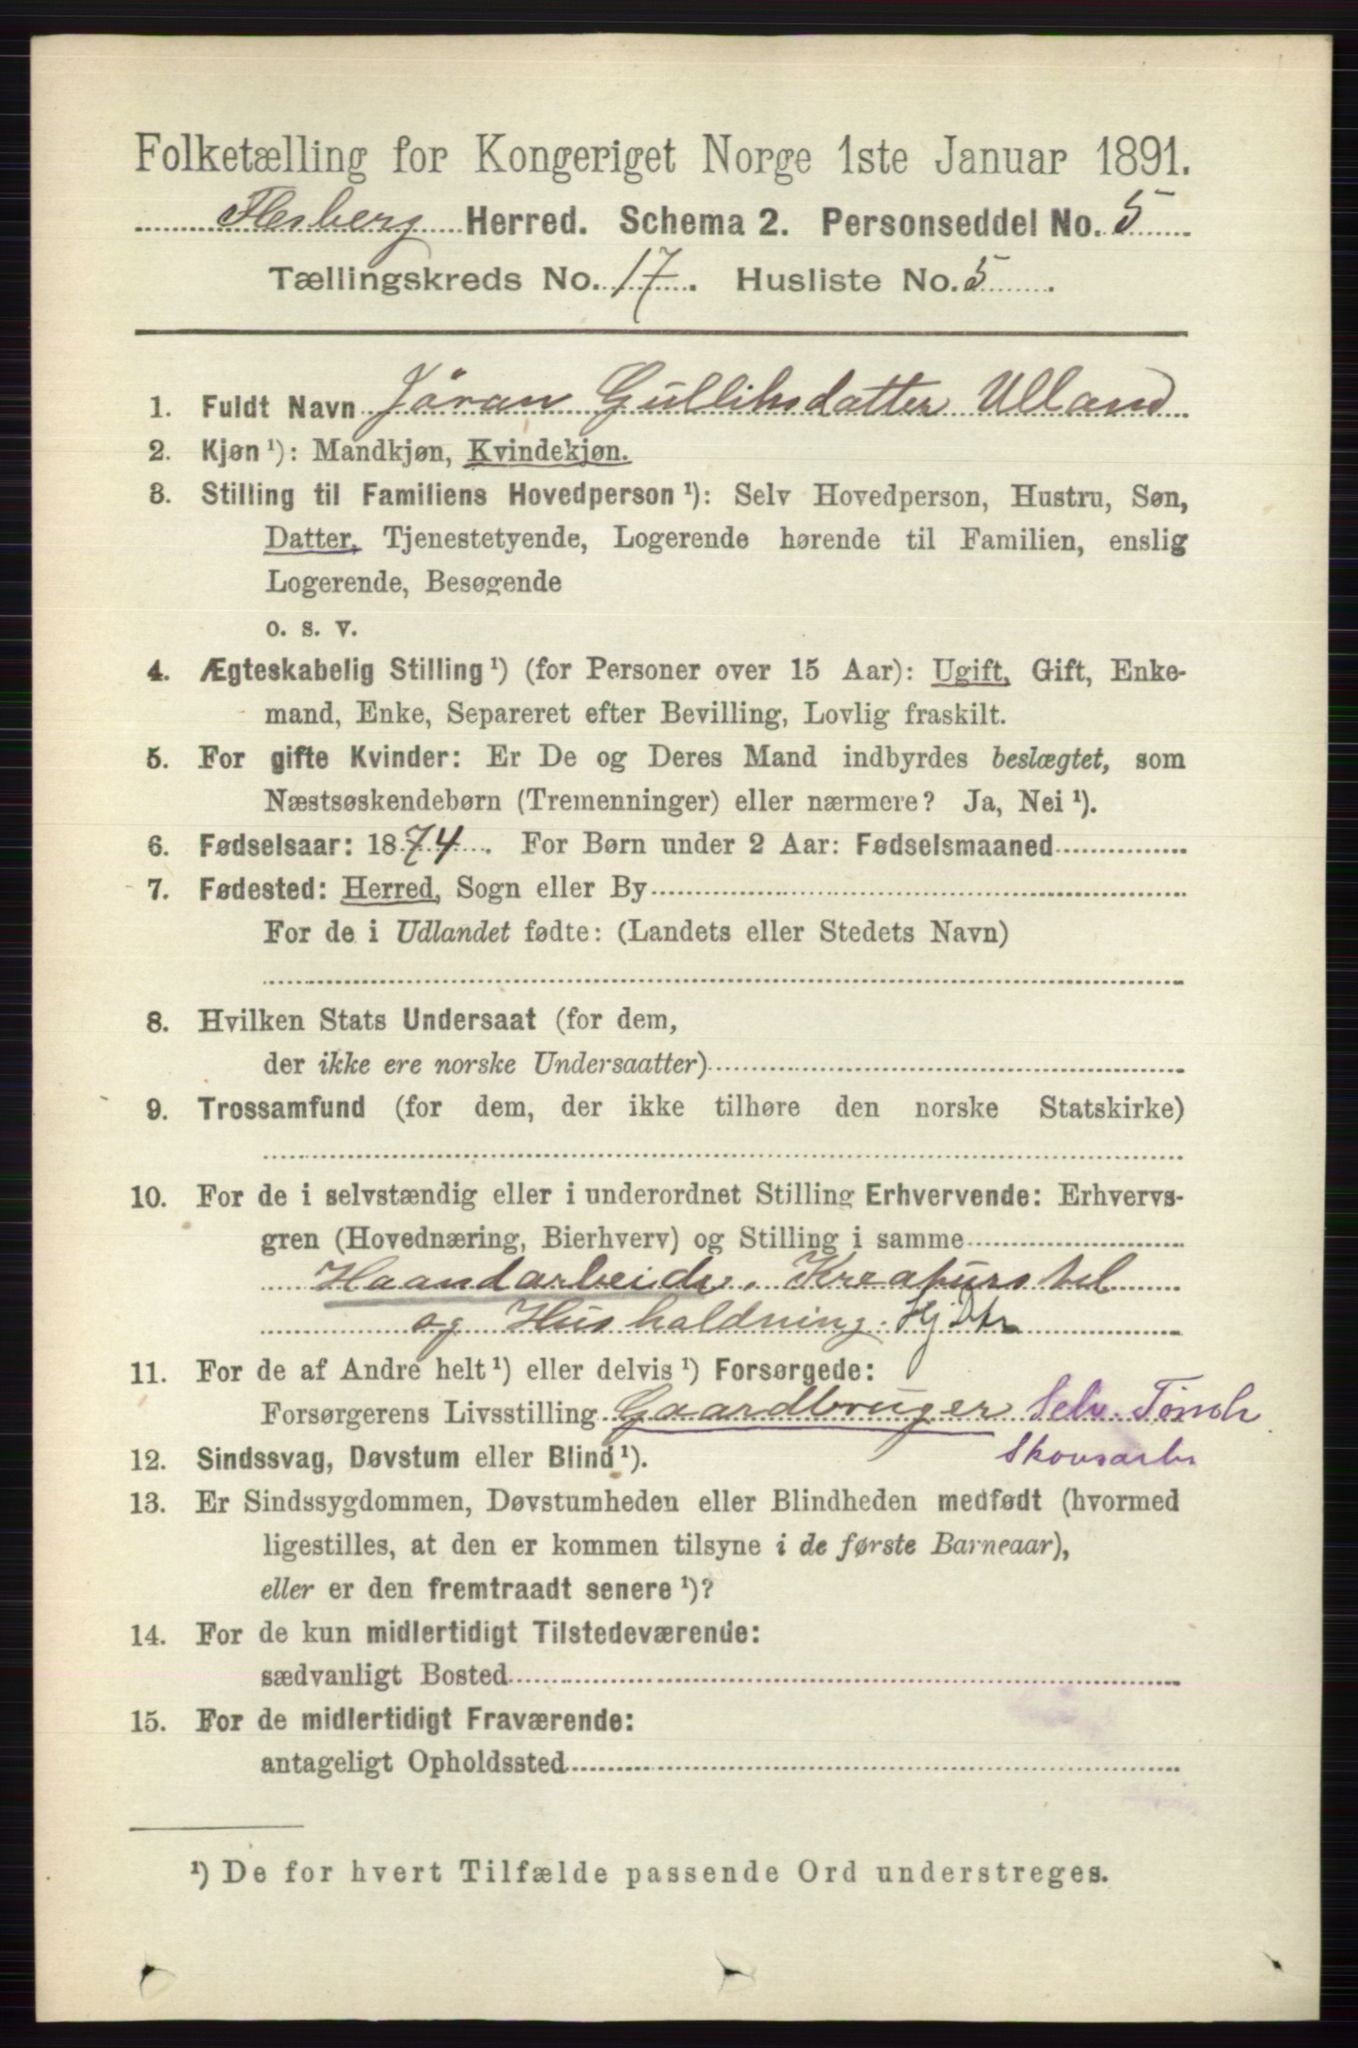 Folketælling for Kongeriget Norge 1ste Januar 1891.
Flesberg Herred. Schema 2. Personseddel No. 5
Tællingskreds No. 17. Husliste No. 5.
1. Fuldt Navn Jöran Gulliksdatter Ulland
2. Kjøn ¹): Mandkjøn, Kvindekjøn.
3. Stilling til Familiens Hovedperson ¹): Selv Hovedperson, Hustru, Søn,
Datter, Tjenestetyende, Logerende hørende til Familien, enslig
Logerende, Besøgende
o. s. v.
4. Ægteskabelig Stilling ¹) (for Personer over 15 Aar): Ugift, Gift, Enke-
mand, Enke, Separeret efter Bevilling, Lovlig fraskilt.
5. For gifte Kvinder: Er De og Deres Mand indbyrdes beslægtet, som
Næstsøskendebørn (Tremenninger) eller nærmere? Ja, Nei ¹).
6. Fødselsaar: 1874. For Børn under 2 Aar: Fødselsmaaned
7. Fødested: Herred, Sogn eller By
For de i Udlandet fødte: (Landets eller Stedets Navn)
8. Hvilken Stats Undersaat (for dem,
der ikke ere norske Undersaatter)
9. Trossamfund (for dem, der ikke tilhøre den norske Statskirke)
10. For de i selvstændig eller i underordnet Stilling Erhvervende: Erhvervs-
gren (Hovednæring, Bierhverv) og Stilling i samme
Haandarbeide, Kreaturstel
og Husholdning. Hj Dtr
11. For de af Andre helt ¹) eller delvis ¹) Forsørgede:
Forsørgerens Livsstilling Gaardbruger Selv.
12. Sindssvag, Døvstum eller Blind ¹). Skovsarb
13. Er Sindssygdommen, Døvstumheden eller Blindheden medfødt (hvormed
ligestilles, at den er kommen tilsyne i de første Barneaar),
eller er den fremtraadt senere ¹)?
14. For de kun midlertidigt Tilstedeværende:
sædvanligt Bosted
15. For de midlertidigt Fraværende:
antageligt Opholdssted
¹) De for hvert Tilfælde passende Ord understreges.